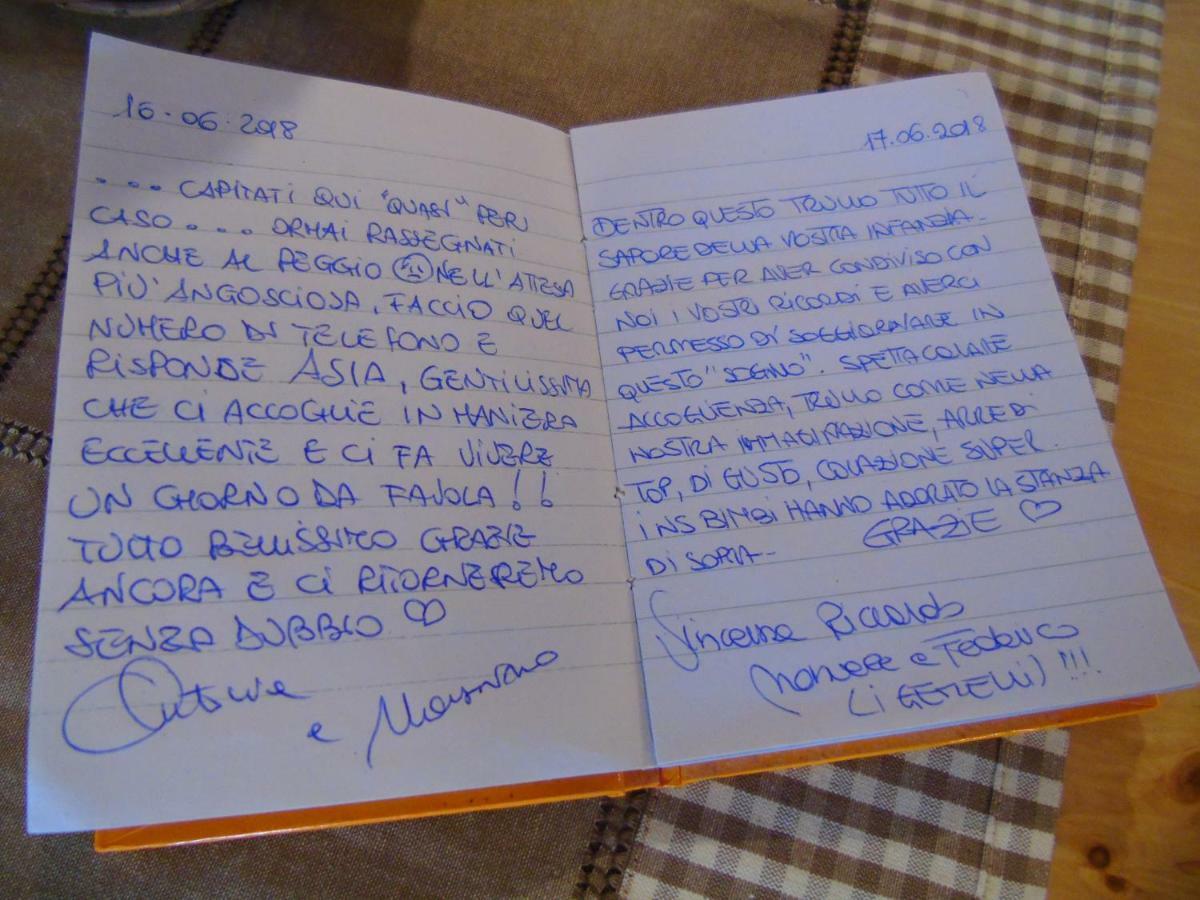 16.06.2018
.... CAPITATI QUI "QUASI" PER
CASO.... ORMAI RASSEGNATI
ANCHE AL PEGGIO NELL'ATTESA
PIU' ANGOSCIOSA, FACCIO QUEL
NUMERO DI TELEFONO E
RISPONDE ASIA, GENTILISSIMA
CHE CI ACCOGLIE IN MANIERA
ECCELLENTE E CI FA VIVERE
UN GIORNO DA FAVOLA!!
TUTTO BELLISSIMO GRAZIE
ANCORA E CI RITORNEREMO
SENZA DUBBIO ♡
e
17.06.2018
DENTRO QUESTO TRULLO TUTTO IL
SAPORE DELLA VOSTRA INFANZIA-
GRAZIE PER AVER CONDIVISO CON
NOI I VOSTRI RICORDI E AVERCI
PERMESSO DI SOGGIORNARE IN
QUESTO "SOGNO". SPETTACOLARE
ACCOGLIENZA, TRULLO COME NELLA
NOSTRA IMMAGINAZIONE, ARREDI
TOP, DI GUSTO, COLAZIONE SUPER.
I NS BIMBI HANNO ADORATO LA STANZA
DI SOPRA- GRAZIE ♡
Riccardo
e Federico
(I GEMELLI) !!!